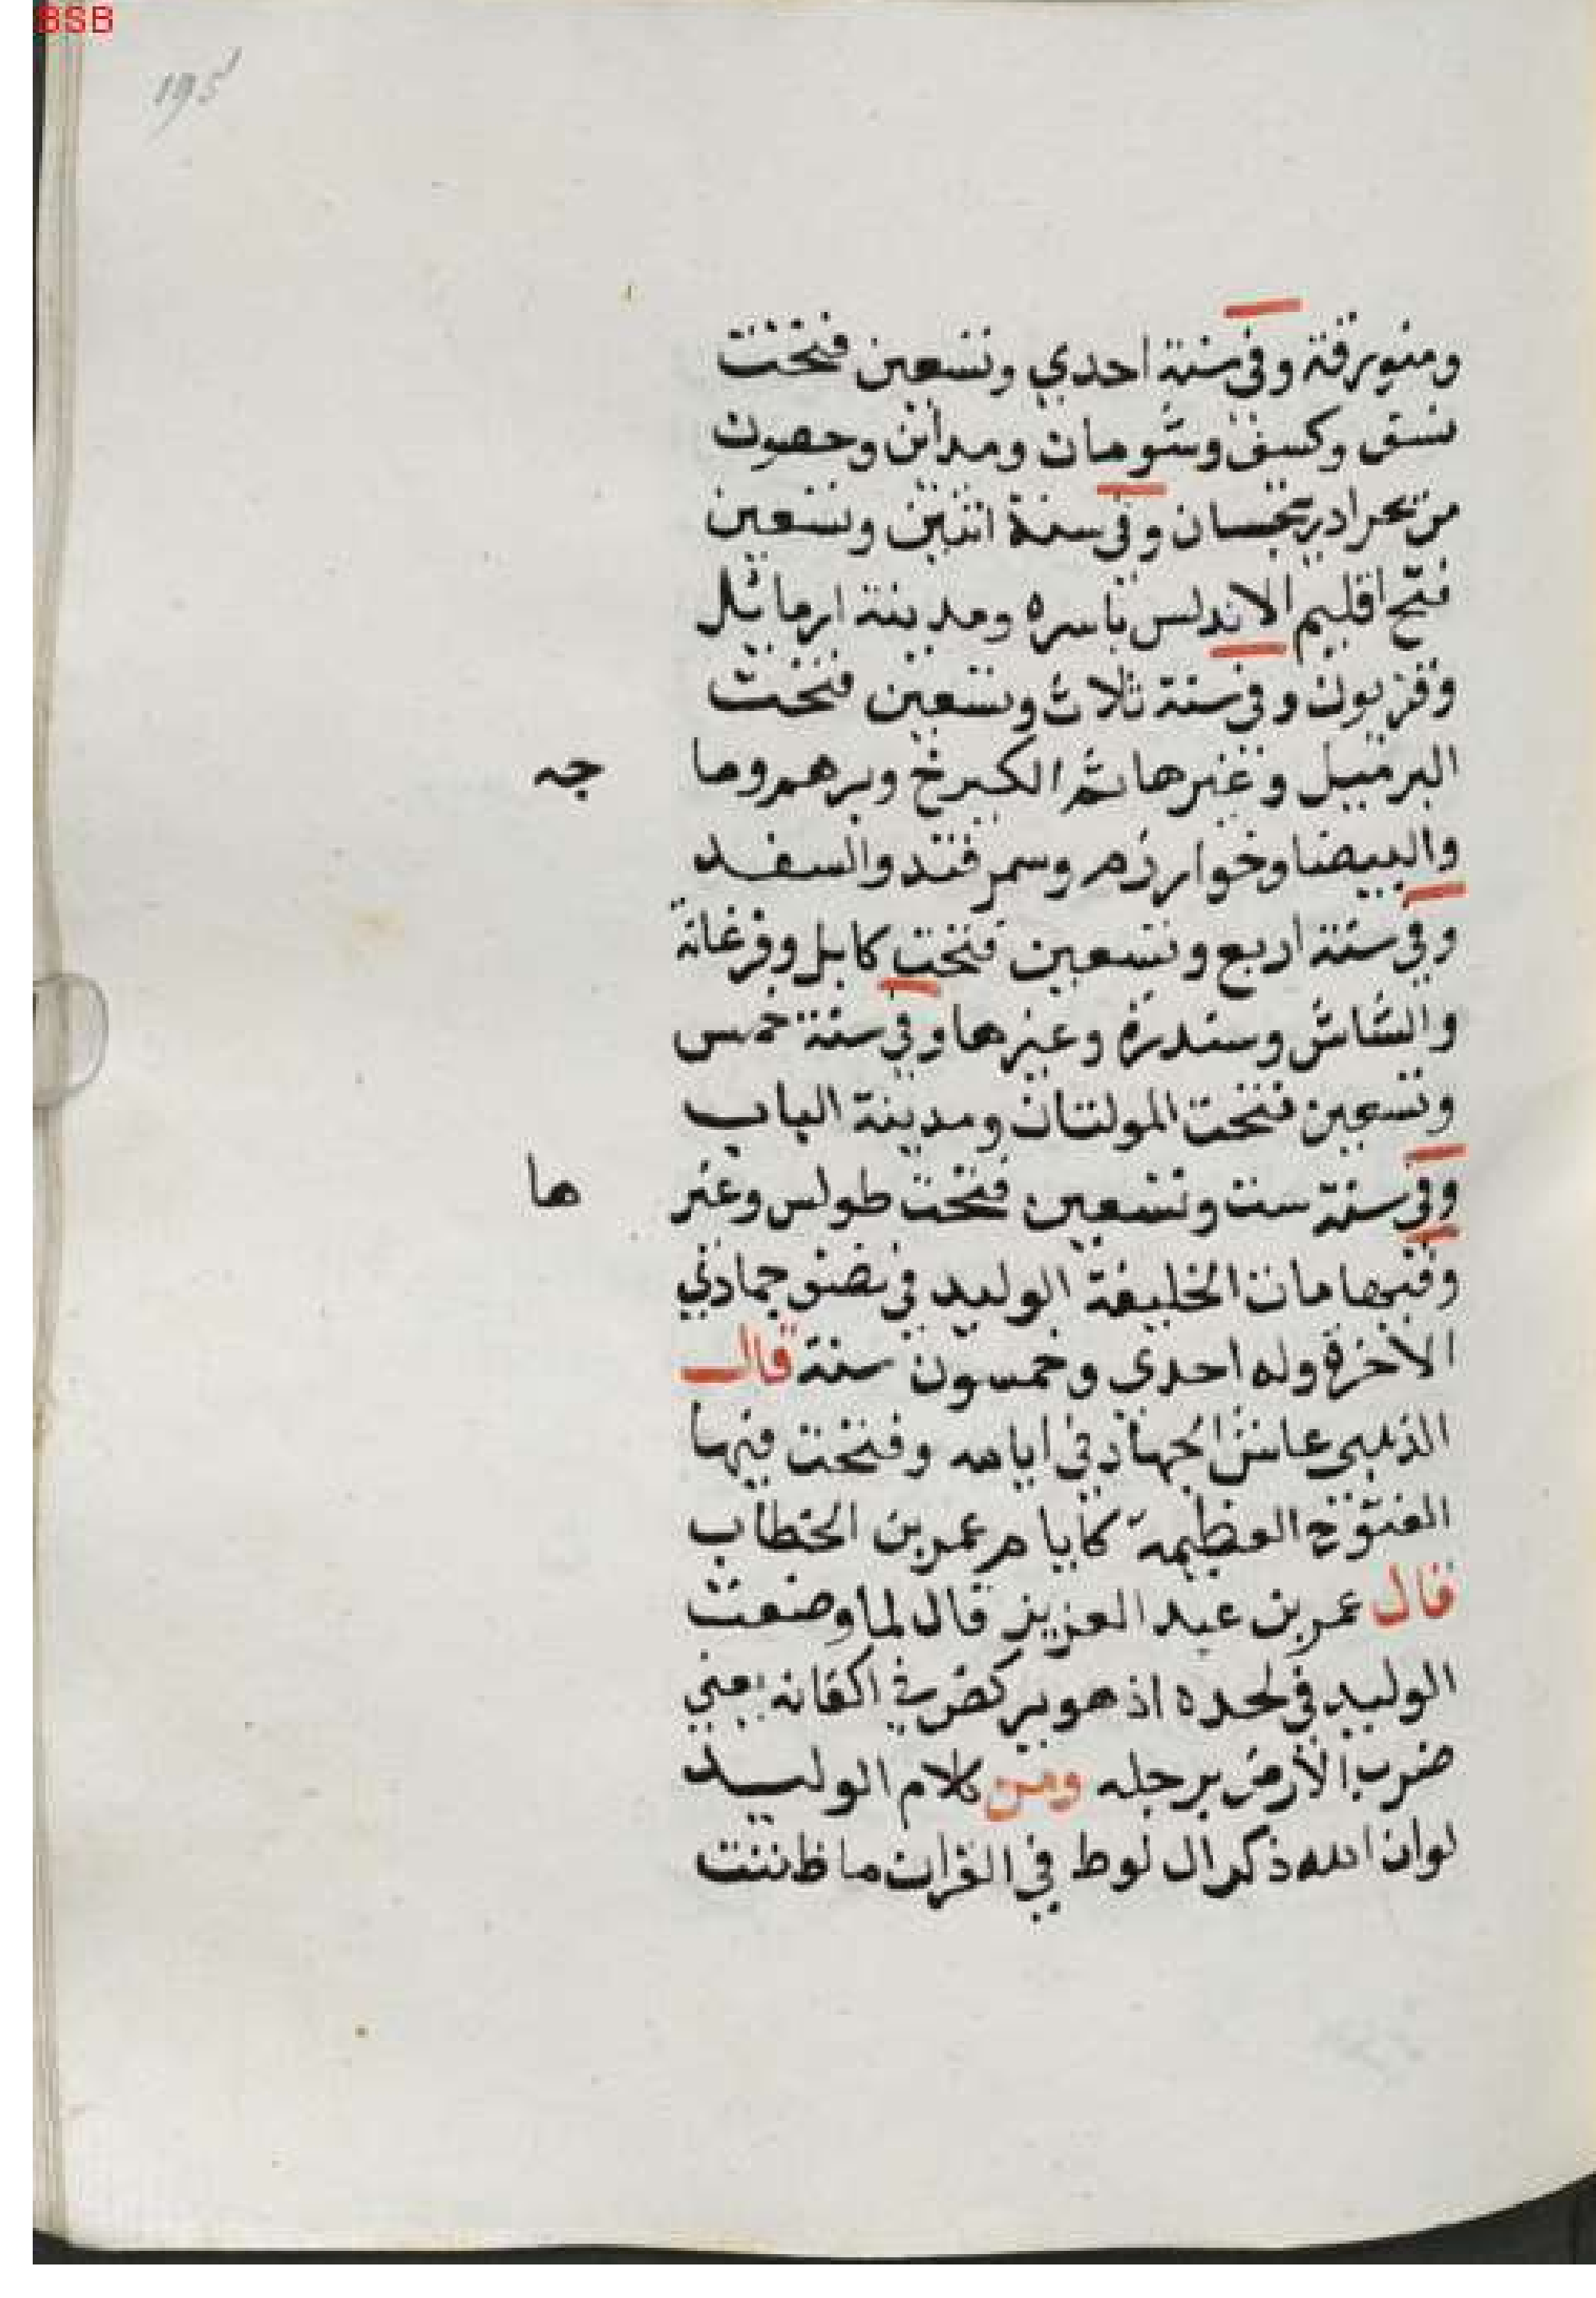 BSB
195
ومنورقة وفي سنة احدي وتسعين فتحت
نسف وكسف وشومان ومداين وحصون
من بحر ادربيجسان وفي سنة اثنين وتسعين
فتح اقليم الاندلس باسره ومدينة ارمائيل
وقنزبون وفي سنة ثلاث وتسعين فتحت
الديبل وغيرها ثم الكيرخ وبرهم وما جه
والبيضا وخوارزم وسمرقند والسغد
وفي سنة اربع وتسعين فتحت كابل وفرغانة
والشاش وسندرة وغيرها وفي سنة خمس
وتسعين فتحت المولتان ومدينة الباب
وفي سنة ست وتسعين فتحت طولس وغير ها
وفيها مات الخليفة الوليد في نصف جمادي
الاخرة وله احدي وخمسون سنة قال
الذهبي عاش الجهاد في ايامه وفتحت فيها
الفتوح العظيمة كايام عمر بن الخطاب
قال عمر بن عبد العزيز قال لما وضعت
الوليد في لحده اذ هو يركض في اكفانه يعني
ضرب الارض برجله ومن كلام الوليد
لو ان الله ذكر ال لوط في القران ما ظننت